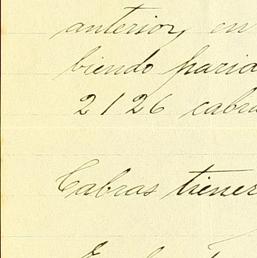 anterior, en
biendo paria
2126 cabra
Cabras tienen